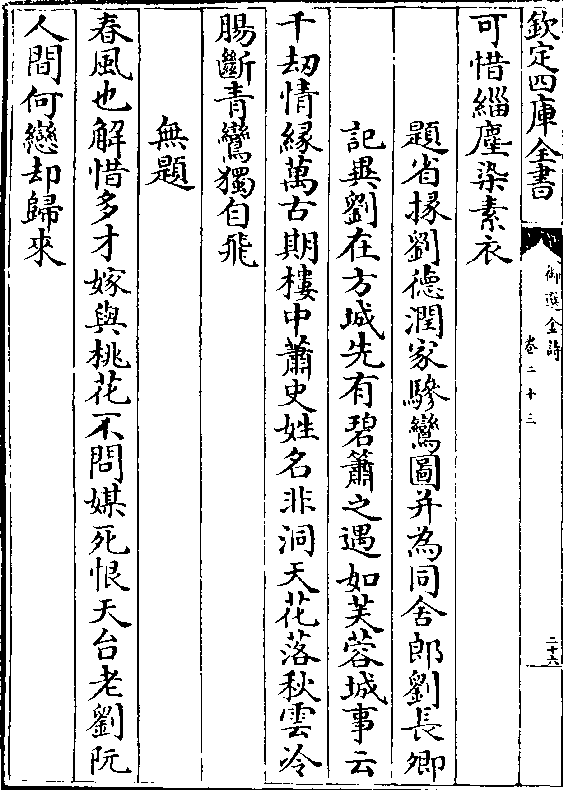 欽定四庫全書
御選金詩
卷二十三
二十六
可惜緇塵染素衣
題省掾劉德潤家驂鸞圖并為同舍郎劉長卿
記異劉在方城先有碧簫之遇如芙蓉城事云
千劫情緣萬古期樓中蕭史姓名非洞天花落秋雲冷
腸斷青鸞獨自飛
無題
春風也解惜多才嫁與桃花不問媒死恨天台老劉阮
人間何戀却歸來